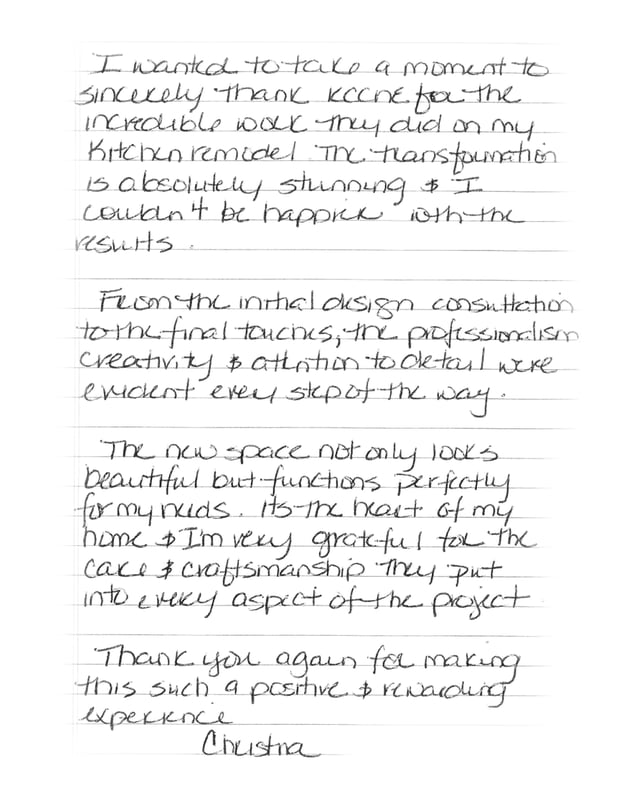 I wanted to take a moment to
sincerely thank KCCNE for the
incredible work they did on my
Kitchen remodel. The transformation
is absolutely stunning & I
couldn't be happier with the
results.
From the initial design consultation
to the final touches, the professionalism
creativity & attention to detail were
evident every step of the way.
The new space not only looks
beautiful but functions perfectly
for my needs. It's the heart of my
home & I'm very grateful for the
care & craftsmanship they put
into every aspect of the project
Thank you again for making
this such a positive & rewarding
experience
Christina